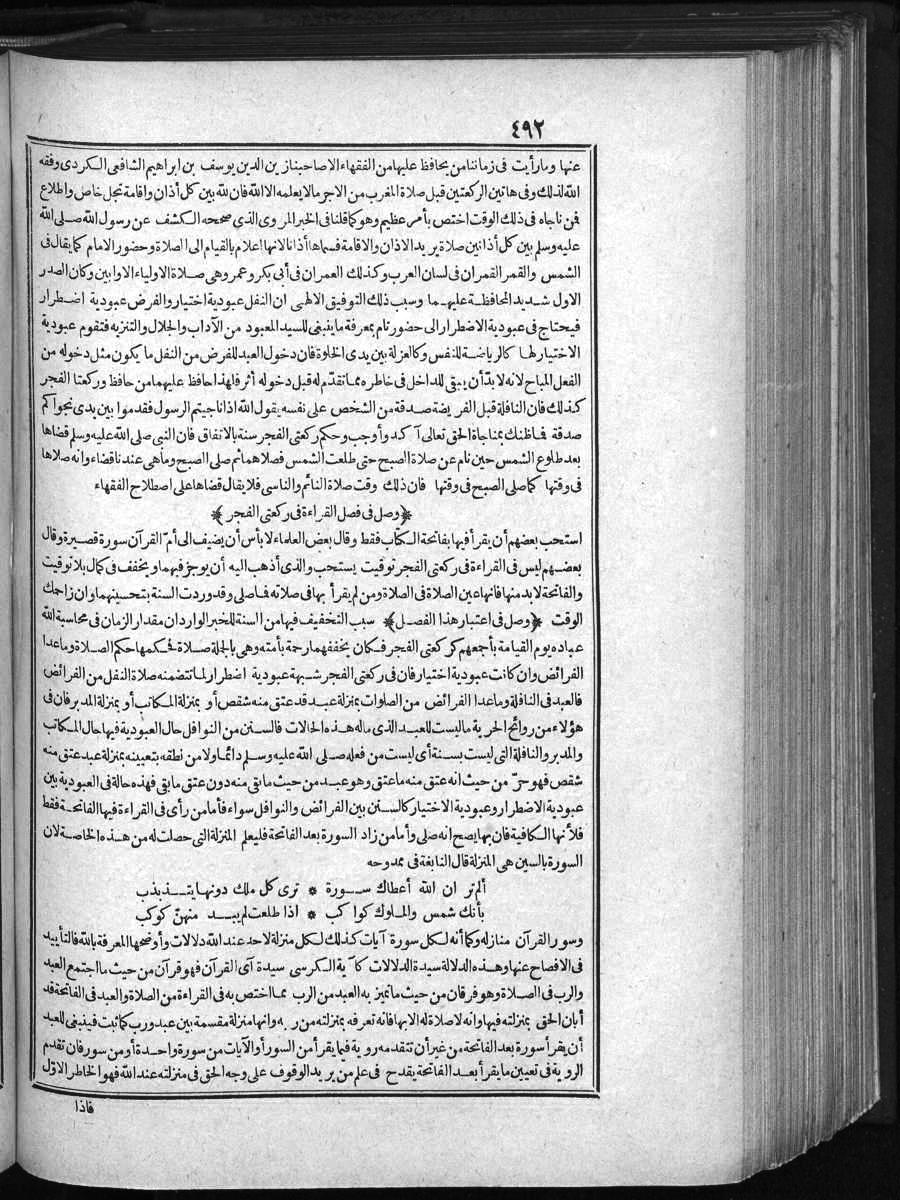 ٤٩٢
عنها وما رأيت فى زماننا من يحافظ عليها من الفقهاء الا صاحبنا زين الدين يوسف بن ابراهيم الشافعى الكردى وفقه
الله لذلك وفى هاتين الركعتين قبل صلاة المغرب من الاجر ما لا يعلمه الا الله فان لله بين كل أذان واقامة تجل خاص واطلاع
فمن ناجاه فى ذلك الوقت اختص بأمر عظيم وهو كما قلنا فى الخبر المروى الذى صححه الكشف عن رسول الله صلى الله
عليه وسلم بين كل أذانين صلاة يريد الاذان والاقامة فسماها أذانا لانها اعلام بالقيام الى الصلاة وحضور الامام كما يقال فى
الشمس والقمر القمران فى لسان العرب وكذلك العمران فى أبى بكر وعمر وهى صلاة الاولياء الاوابين وكان الصدر
الاول شديد المحافظة عليهما وسبب ذلك التوفيق الالهى ان النفل عبودية اختيار والفرض عبودية اضطرار
فيحتاج فى عبودية الاضطرار الى حضور تام بمعرفة ما ينبغى للسيد المعبود من الآداب والجلال والتنزيه فتقوم عبودية
الاختيار لها كالرياضة للنفس وكالعزلة بين يدى الخلوة فان دخول العبد للفرض من النفل ما يكون مثل دخوله من
الفعل المباح لانه لا بدّ أن يبقى للداخل فى خاطره مما تقدّم له قبل دخوله أثر فلهذا حافظ عليهما من حافظ وركعتا الفجر
كذلك فان النافلة قبل الفريضة صدقة من الشخص على نفسه يقول الله اذا ناجيتم الرسول فقدموا بين يدى نجواكم
صدقة فما ظنك بمناجاة الحق تعالى آكد وأوجب وحكم ركعتى الفجر سنة بالاتفاق فان النبى صلى الله عليه وسلم قضاها
بعد طلوع الشمس حين نام عن صلاة الصبح حتى طلعت الشمس فصلاهما ثم صلى الصبح وما هى عندنا قضاء وانه صلاها
فى وقتها كما صلى الصبح فى وقتها فان ذلك وقت صلاة النائم والناسى فلا يقال قضاها على اصطلاح الفقهاء
﴿وصل فى فصل القراءة فى ركعتى الفجر﴾
استحب بعضهم أن يقرأ فيها بفاتحة الكتاب فقط وقال بعض العلماء لا بأس أن يضيف الى أمّ القرآن سورة قصيرة وقال
بعضهم ليس فى القراءة فى ركعتى الفجر توقيت يستحب والذى أذهب اليه أن يوجز فيهما ويخفف فى كمال بلا توقيت
والفاتحة لا بد منها فانها عين الصلاة فى الصلاة ومن لم يقرأ بها فى صلاته فما صلى وقد وردت السنة بتحسينهما وان زاحمك
الوقت ﴿وصل فى اعتبار هذا الفصل﴾ سبب التخفيف فيها من السنة للخبر الوارد ان مقدار الزمان فى محاسبة الله
عباده يوم القيامة بأجمعهم كركعتى الفجر فكان يخففهما رحمة بأمته وهى بالجملة صلاة فحكمها حكم الصلاة وما عدا
الفرائض وان كانت عبودية اختيار فان فى ركعتى الفجر شبهة عبودية اضطرار لما تتضمنه صلاة النفل من الفرائض
فالعبد فى النافلة وما عدا الفرائض من الصلوات بمنزلة عبد قد عتق منه شقص أو بمنزلة المكاتب أو بمنزلة المدبر فان فى
هؤلاء من روائح الحرية ما ليست للعبد الذى ماله هذه الحالات فالسنن من النوافل حال العبودية فيها حال المكاتب
والمدبر والنافلة التى ليست بسنة أى ليست من فعله صلى الله عليه وسلم دائما ولا من نطقه بتعيينه بمنزلة عبد عتق منه
شقص فهو حرّ من حيث انه عتق منه ما عتق وهو عبد من حيث ما بقى منه دون عتق ما بقى فهذه حالة فى العبودية بين
عبودية الاضطرار وعبودية الاختيار كالسنن بين الفرائض والنوافل سواء فأما من رأى فى القراءة فيها الفاتحة فقط
فلأنها الكافية فان بها يصح انه صلى وأما من زاد السورة بعد الفاتحة فليعلم المنزلة التى حصلت له من هذه الخاصة لان
السورة بالسين هى المنزلة قال النابغة فى ممدوحه
ألم تر ان الله أعطاك سورة * ترى كل ملك دونها يتذبذب
بأنك شمس والملوك كواكب * اذا طلعت لم يبد منهنّ كوكب
وسور القرآن منازله وكما أنه لكل سورة آيات كذلك لكل منزلة لاحد عند الله دلالات وأوضحها المعرفة بالله فالتأييد
فى الافصاح عنها وهذه الدلالة سيدة الدلالات كآية الكرسى سيدة آى القرآن فهو قرآن من حيث ما اجتمع العبد
والرب فى الصلاة وهو فرقان من حيث ما تميز به العبد من الرب مما اختص به فى القراءة من الصلاة والعبد فى الفاتحة قد
أبان الحق بمنزلته فيها وانه لا صلاة له الا بها فانه تعرفه بمنزلته من ربه وانها منزلة مقسمة بين عبد ورب كما ثبت فينبغى للعبد
أن يقرأ سورة بعد الفاتحة من غير أن تتقدمه روية فيما يقرأ من السور أو الآيات من سورة واحدة أو من سور فان تقدم
الروية فى تعيين ما يقرأ بعد الفاتحة يقدح فى علم من يريد الوقوف على وجه الحق فى منزلته عند الله فهو الخاطر الاوّل
فاذا